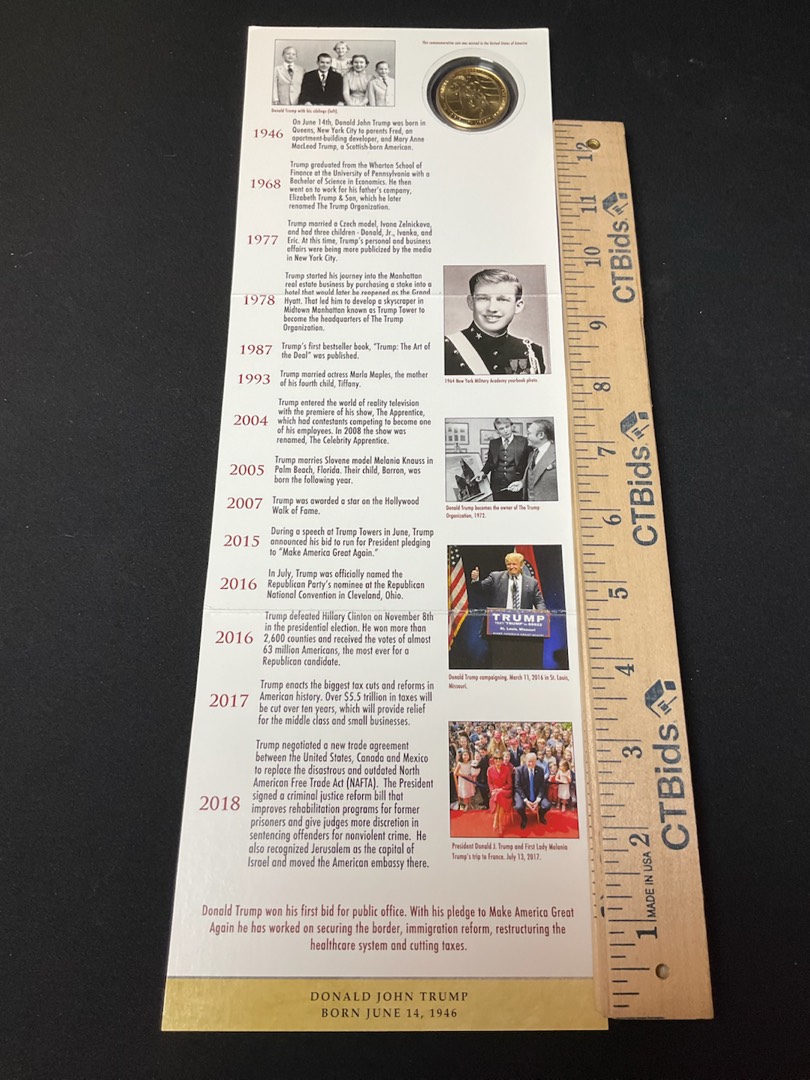 This commemorative coin was minted in the United States of America
Donald Trump with his siblings (left).
1946
On June 14th, Donald John Trump was born in
Queens, New York City to parents Fred, an
apartment-building developer, and Mary Anne
MacLeod Trump, a Scottish-born American.
1968
Trump graduated from the Wharton School of
Finance at the University of Pennsylvania with a
Bachelor of Science in Economics. He then
went on to work for his father's company,
Elizabeth Trump & Son, which he later
renamed The Trump Organization.
1977
Trump married a Czech model, Ivana Zelnickova,
and had three children - Donald, Jr., Ivanka, and
Eric. At this time, Trump's personal and business
affairs were being more publicized by the media
in New York City.
1978
Trump started his journey into the Manhattan
real estate business by purchasing a stake into a
hotel that would later be reopened as the Grand
Hyatt. That led him to develop a skyscraper in
Midtown Manhattan known as Trump Tower to
become the headquarters of The Trump
Organization.
1987
Trump's first bestseller book, "Trump: The Art of
the Deal" was published.
1993
Trump married actress Marla Maples, the mother
of his fourth child, Tiffany.
2004
Trump entered the world of reality television
with the premiere of his show, The Apprentice,
which had contestants competing to become one
of his employees. In 2008 the show was
renamed, The Celebrity Apprentice.
2005
Trump marries Slovene model Melania Knauss in
Palm Beach, Florida. Their child, Barron, was
born the following year.
2007
Trump was awarded a star on the Hollywood
Walk of Fame.
2015
During a speech at Trump Towers in June, Trump
announced his bid to run for President pledging
to "Make America Great Again."
2016
In July, Trump was officially named the
Republican Party's nominee at the Republican
National Convention in Cleveland, Ohio.
2016
Trump defeated Hillary Clinton on November 8th
in the presidential election. He won more than
2,600 counties and received the votes of almost
63 million Americans, the most ever for a
Republican candidate.
2017
Trump enacts the biggest tax cuts and reforms in
American history. Over $5.5 trillion in taxes will
be cut over ten years, which will provide relief
for the middle class and small businesses.
2018
Trump negotiated a new trade agreement
between the United States, Canada and Mexico
to replace the disastrous and outdated North
American Free Trade Act (NAFTA). The President
signed a criminal justice reform bill that
improves rehabilitation programs for former
prisoners and give judges more discretion in
sentencing offenders for nonviolent crime. He
also recognized Jerusalem as the capital of
Israel and moved the American embassy there.
1964 New York Military Academy yearbook photo.
Donald Trump becomes the owner of The Trump
Organization, 1972.
TRUMP
St. Louis, Missouri
Donald Trump campaigning, March 11, 2016 in St. Louis,
Missouri.
President Donald J. Trump and First Lady Melania
Trump's trip to France. July 13, 2017.
Donald Trump won his first bid for public office. With his pledge to Make America Great
Again he has worked on securing the border, immigration reform, restructuring the
healthcare system and cutting taxes.
DONALD JOHN TRUMP
BORN JUNE 14, 1946
12
11
10
9
8
7
6
5
4
3
2
1
CTBids.
CTBids.
CTBids.
MADE IN USA